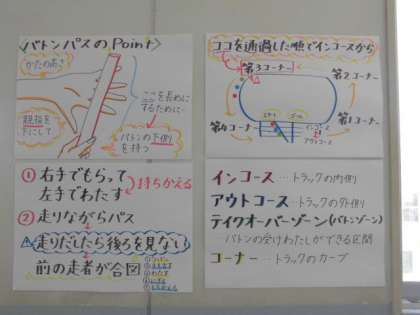 〈バトンパスのPoint〉
かたの高さ
ココを長めに
するために…
親指を
下にして
バトンの下側
を持つ
①右手でもらって
左手でわたす
持ちかえる
②走りながらパス
走りだしたら後ろを見ない
前の走者が合図
ココを通過した順でインコースから
第3コーナー
第2コーナー
第4コーナー
第1コーナー
インコース
アウトコース
インコース…トラックの内側
アウトコース…トラックの外側
テイクオーバーゾーン(バトンゾーン)
バトンの受けわたしができる区間
コーナー…トラックのカーブ